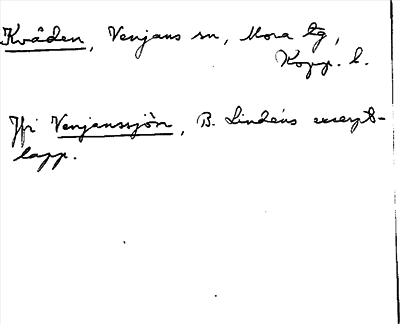 Kvåden, Venjans sn, Mora tg,
Kopp. l.
Jfr Venjanssjön, B. Lindéns excerpt-
lapp.